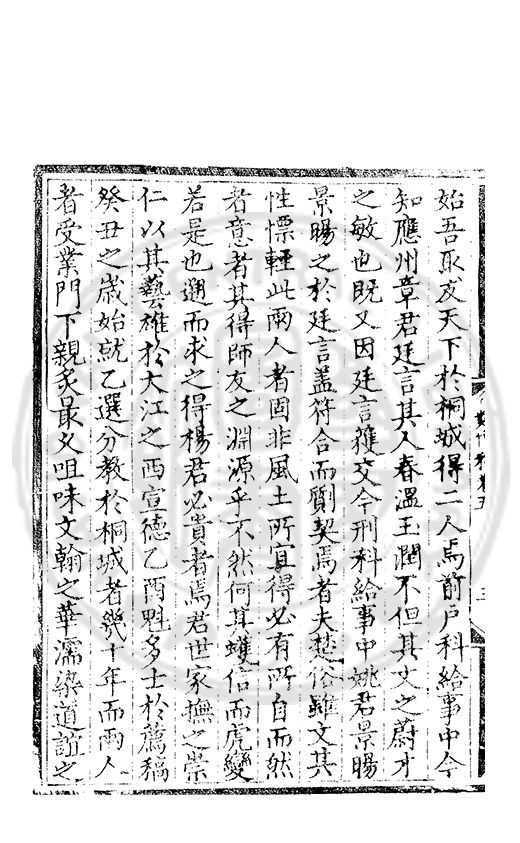 始吾取友天下於桐城得二人焉前户科給事中今
知應州章君廷言其人春溫玉潤不但其文之蔚才
之敏也既又因廷言獲交今刑科給事中姚君景暘
景暘之於廷言盖符合而劑契焉者夫楚俗雖文其
性慓輕此兩人者固非風土所宜得必有所自而然
者意者其得師友之淵源乎不然何其蠖信而虎變
若是也遡而求之得楊君必貴者焉君世家撫之崇
仁以其藝雄於大江之西宣德乙酉魁多士於薦稿
癸丑之歲始就乙選分教於桐城者幾十年而兩人
者受業門下親炙最久咀味文翰之華濡染道誼之